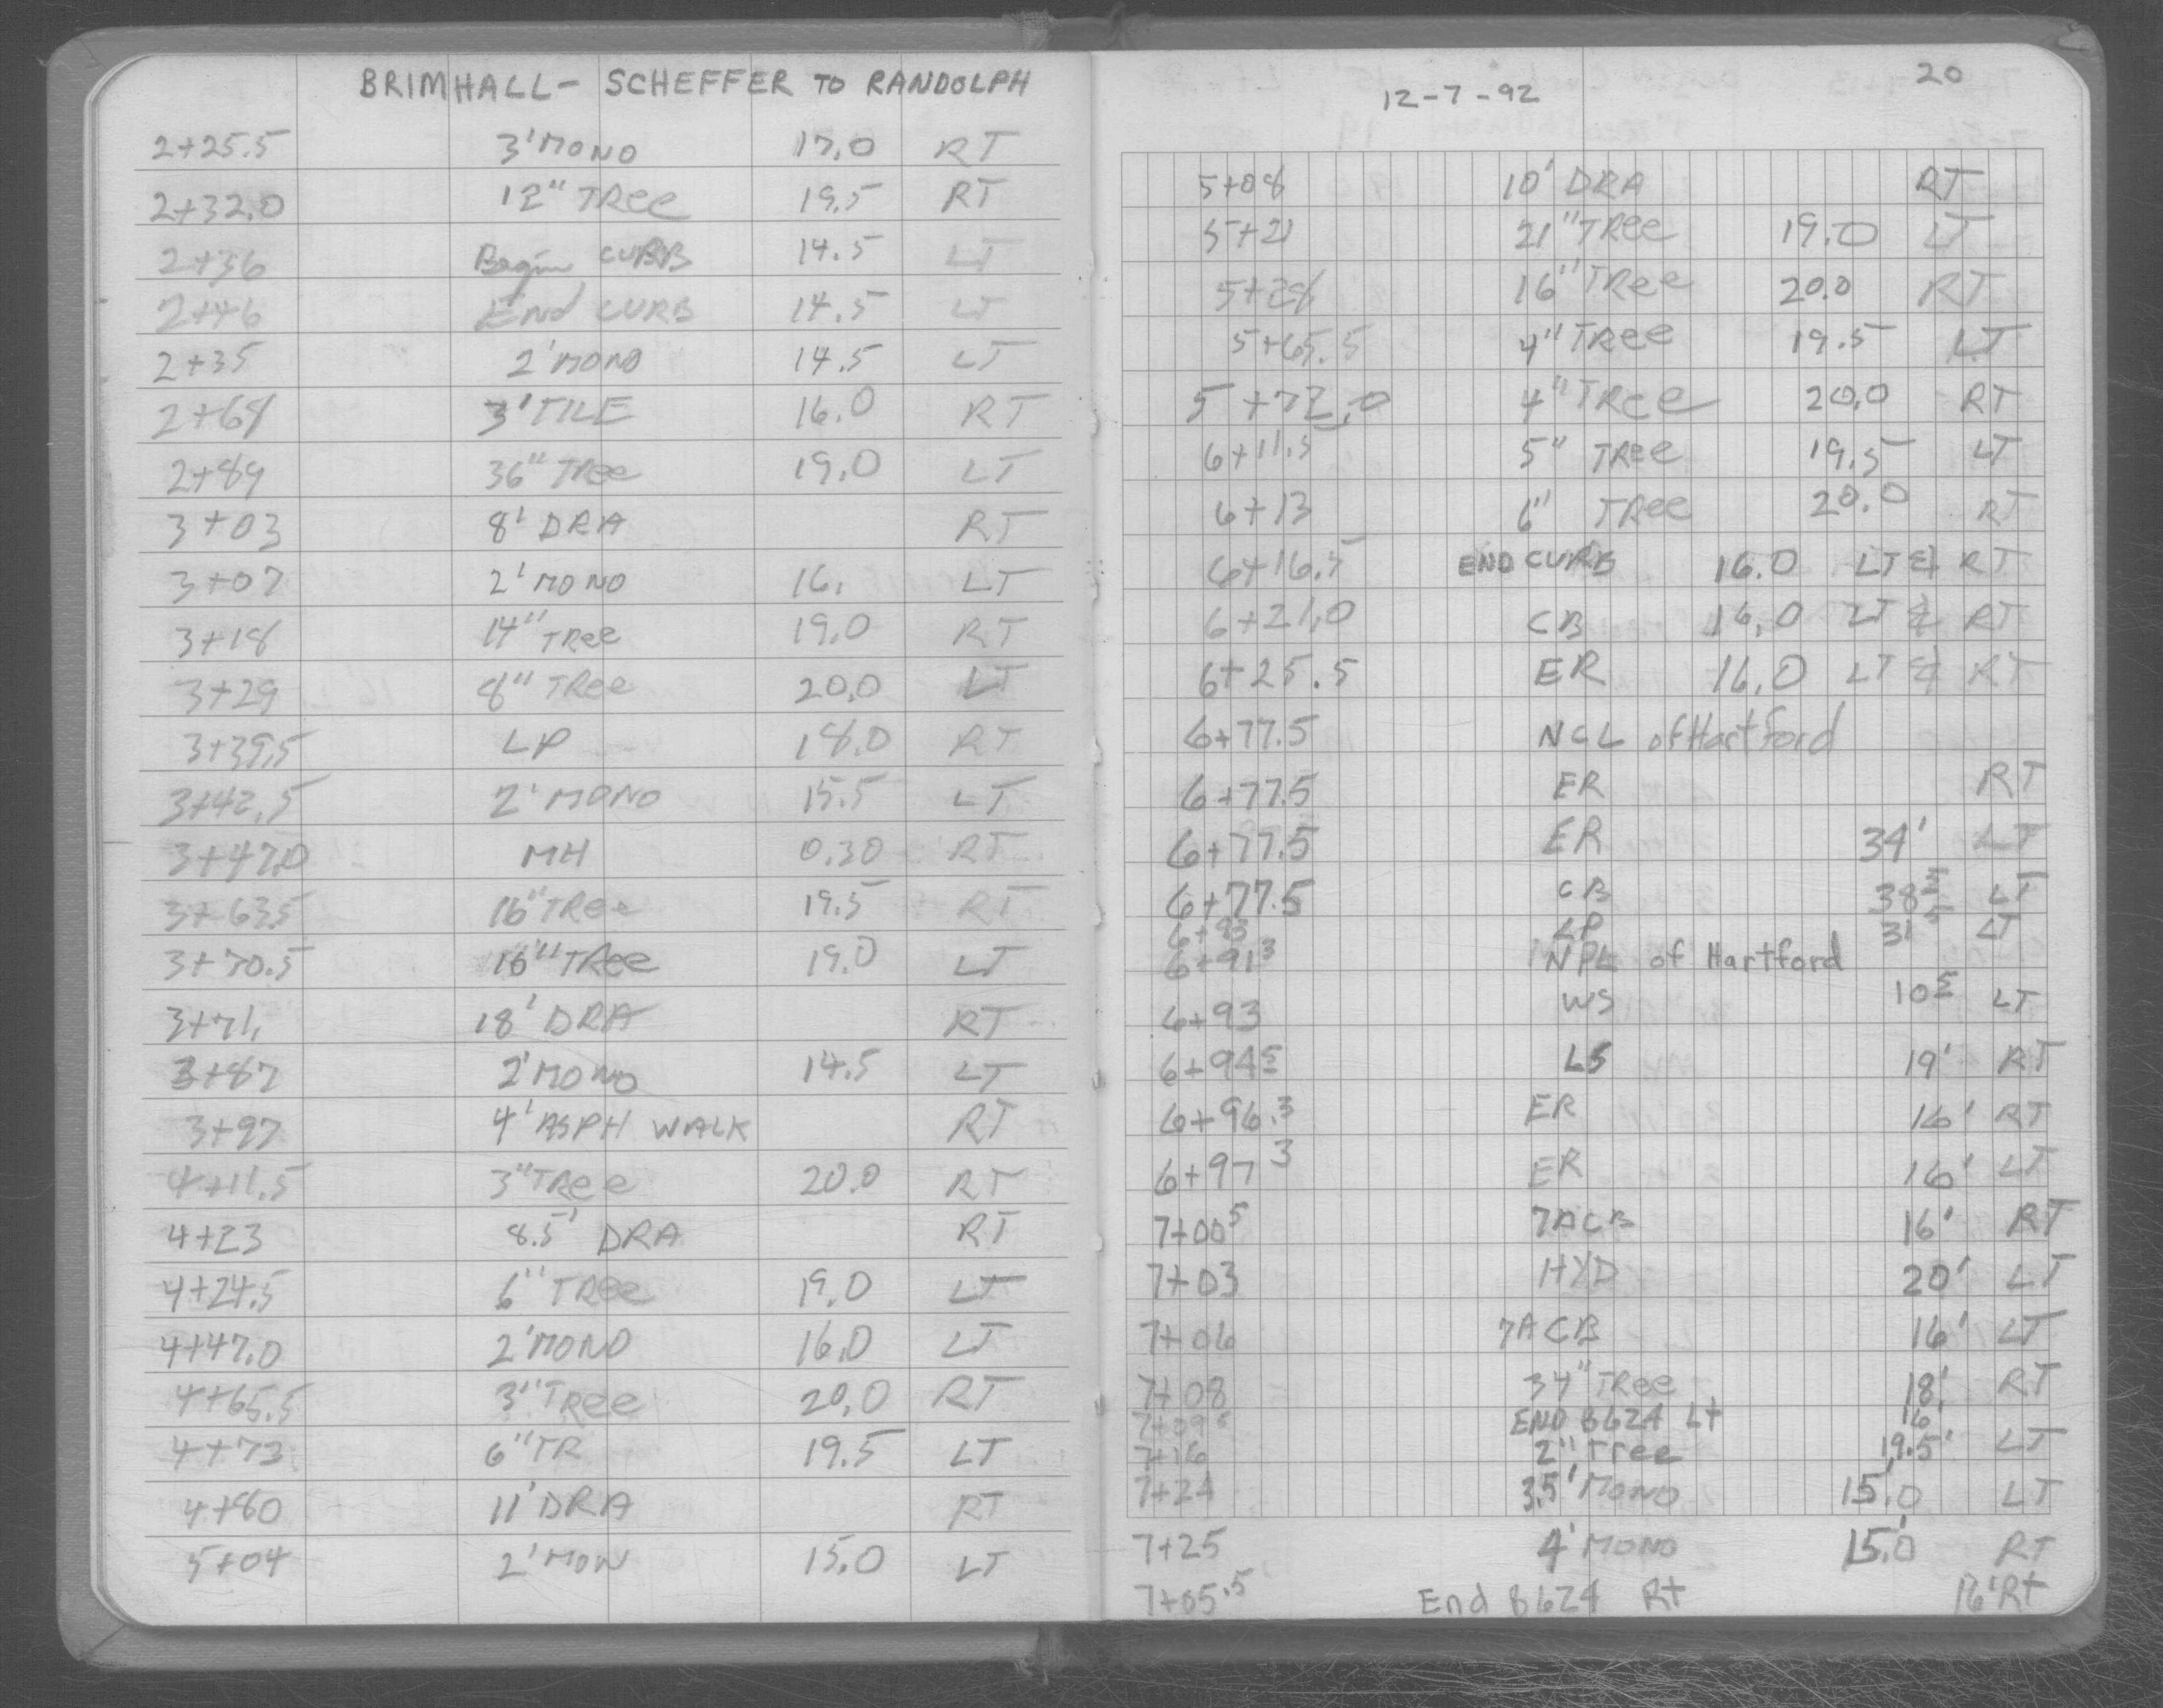 BRIMHALL - SCHEFFER TO RANDOLPH
2+25.5 3' MONO 17.0 RT
2+32.0 12" TRee 19.5 RT
2+36 Begin CURB 14.5 LT
2+46 End CURB 14.5 LT
2+35 2' MONO 14.5 LT
2+68 3' TILE 16.0 RT
2+89 36" TRee 19.0 LT
3+03 8' DRA RT
3+07 2' MONO 16. LT
3+18 14" TRee 19.0 RT
3+29 8" TRee 20.0 LT
3+39.5 LP 18.0 RT
3+42.5 2' MONO 15.5 LT
3+47.0 MH 0.30 RT
3+63.5 16" TRee 19.5 RT
3+70.5 16" TRee 19.0 LT
3+71. 18' DRA RT
3+87 2' MONO 14.5 LT
3+97 4' ASPH WALK RT
4+11.5 3" TRee 20.0 RT
4+23 8.5' DRA RT
4+24.5 6" TRee 19.0 LT
4+47.0 2' MONO 16.0 LT
4+65.5 3" TRee 20.0 RT
4+73 6" TR 19.5 LT
4+80 11' DRA RT
5+04 2' MON 15.0 LT
12-7-92 20
5+08 10' DRA RT
5+21 21" TRee 19.0 LT
5+28 16" TRee 20.0 RT
5+65.5 4" TRee 19.5 LT
5+72.0 4" TRee 20.0 RT
6+11.5 5" TRee 19.5 LT
6+13 6" TRee 20.0 RT
6+16.5 END CURB 16.0 LT & RT
6+21.0 CB 16.0 LT & RT
6+25.5 ER 16.0 LT & RT
6+77.5 NCL of Hartford
6+77.5 ER RT
6+77.5 ER 34' LT
6+77.5 CB 38⁵ LT
6+83 LP 31⁵ LT
6+91³ NPL of Hartford
6+93 WS 10⁵ LT
6+94⁵ LS 19' RT
6+96.3 ER 16' RT
6+97³ ER 16' LT
7+00⁵ 7A CB 16' RT
7+03 HYD 20' LT
7+06 7A CB 16' LT
7+08 34" TRee 18' RT
7+09 END B624 Lt 16
7+16 2" Tree 19.5' LT
7+24 3.5' MONO 15.0 LT
7+25 4' MONO 15.0 RT
7+05.5 End B624 Rt 16' Rt